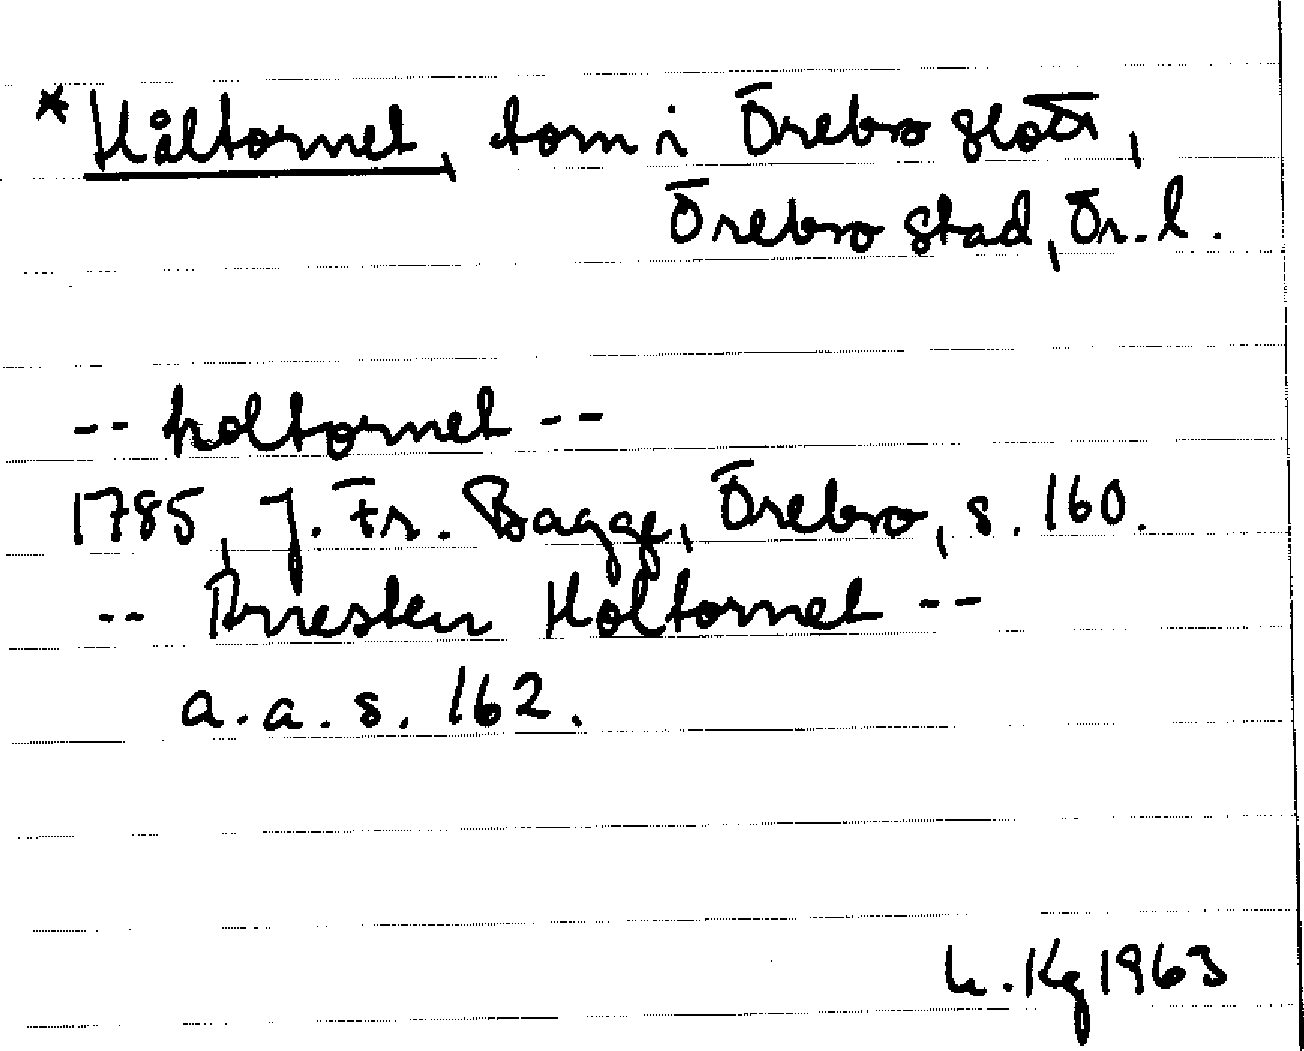 * Håltornet, torn i Örebro slott,
Örebro stad, Ör. l.
-- holtornet --
1785, J. Fr. Bagge, Örebro, s. 160.
-- Rwesten Holtornet --
a. a. s. 162.
L. Kg 1963